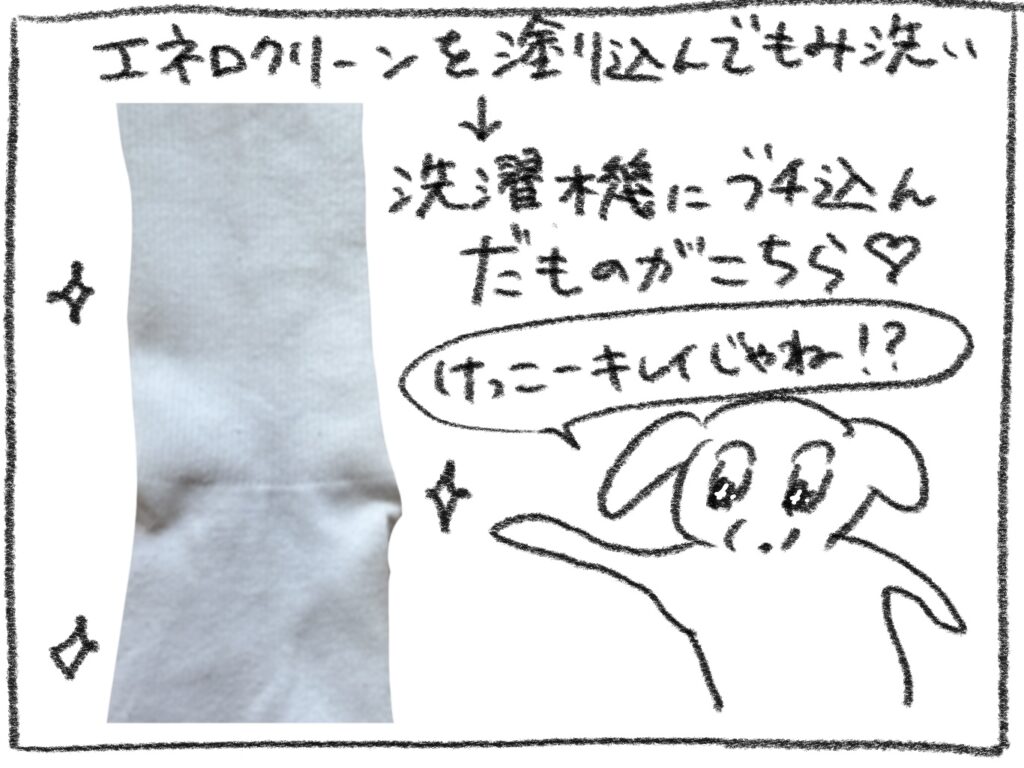 エネロクリーンを塗り込んでもみ洗い
↓
洗濯機にブチ込ん
だものがこちら♡
けっこーキレイじゃね!?